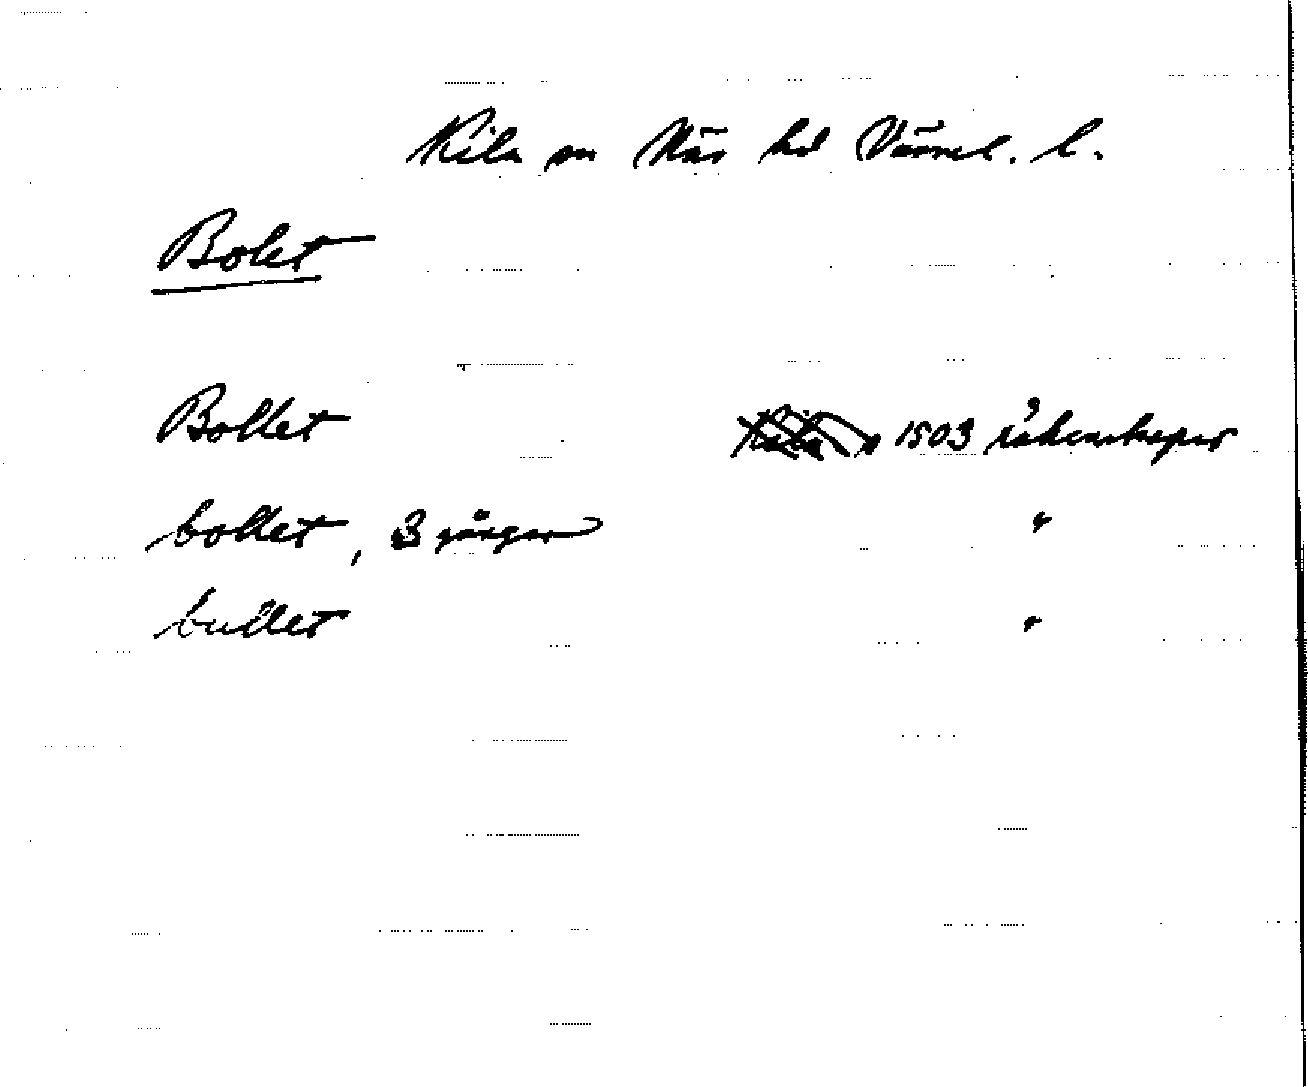 Kila sn Näs hd Värml. l.
Bolet
Bollet 1503 räkenskaper
bollet, 3 gånger "
bullet "